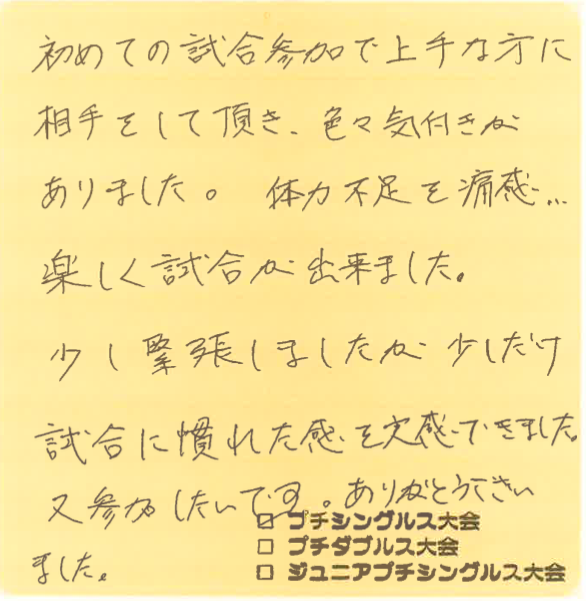 初めての試合参加で上手な方に
相手をして頂き、色々気付きが
ありました。 体力不足を痛感…
楽しく試合が出来ました。
少し緊張しましたが 少しだけ
試合に慣れた感を実感できました。
又参加したいです。ありがとうござい
ました。
□ プチシングルス大会
□ プチダブルス大会
□ ジュニアプチシングルス大会